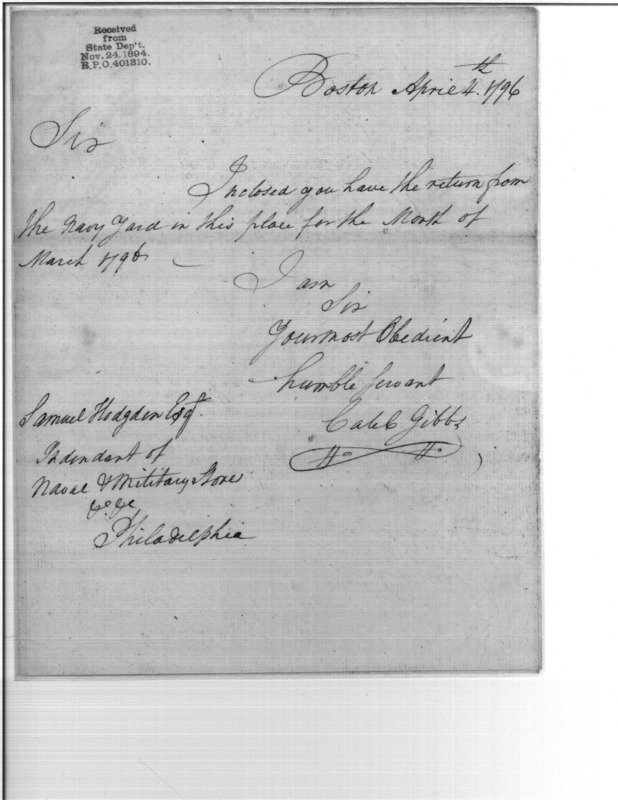 Received
from
State Dep't.
Nov. 24. 1894.
R.P.O. 401310.
Boston April 4th. 1796
Sir
Inclosed you have the return from
the Navy Yard in this place for the Month of
March 1796 —
I am
Sir
Your most Obedient
humble Servant
Caleb Gibbs
Samuel Hodgden Esqr.
Indendant of
Naval & Military Stores
&c &c
Philadelphia